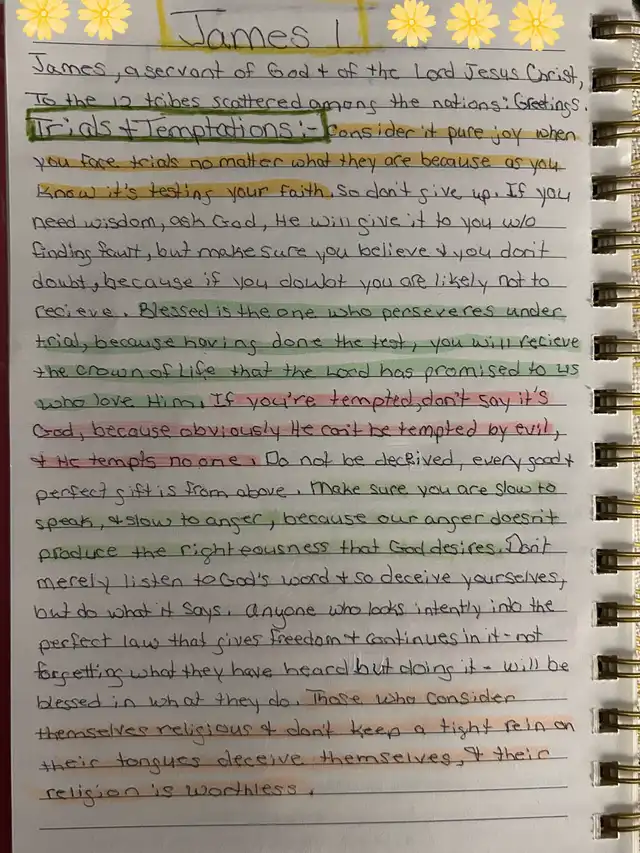 James 1
James, a servant of God + of the Lord Jesus Christ,
To the 12 tribes scattered among the nations: Greetings.
Trials + Temptations:- Consider it pure joy when
you face trials no matter what they are because as you
know it's testing your faith. So don't give up. If you
need wisdom, ask God, He will give it to you w/o
finding fault, but make sure you believe + you don't
doubt, because if you doubt you are likely not to
recieve. Blessed is the one who perseveres under
trial, because having done the test, you will recieve
the crown of life that the Lord has promised to us
who love Him. If you're tempted, don't say it's
God, because obviously He can't be tempted by evil,
+ He tempts no one. Do not be decieved, every good +
perfect gift is from above. Make sure you are slow to
speak, + slow to anger, because our anger doesn't
produce the righteousness that God desires. Don't
merely listen to God's word + so deceive yourselves,
but do what it says. Anyone who looks intently into the
perfect law that gives freedom + continues in it - not
forgetting what they have heard but doing it - will be
blessed in what they do. Those who consider
themselves religious + don't keep a tight rein on
their tongues deceive themselves, + their
religion is worthless.